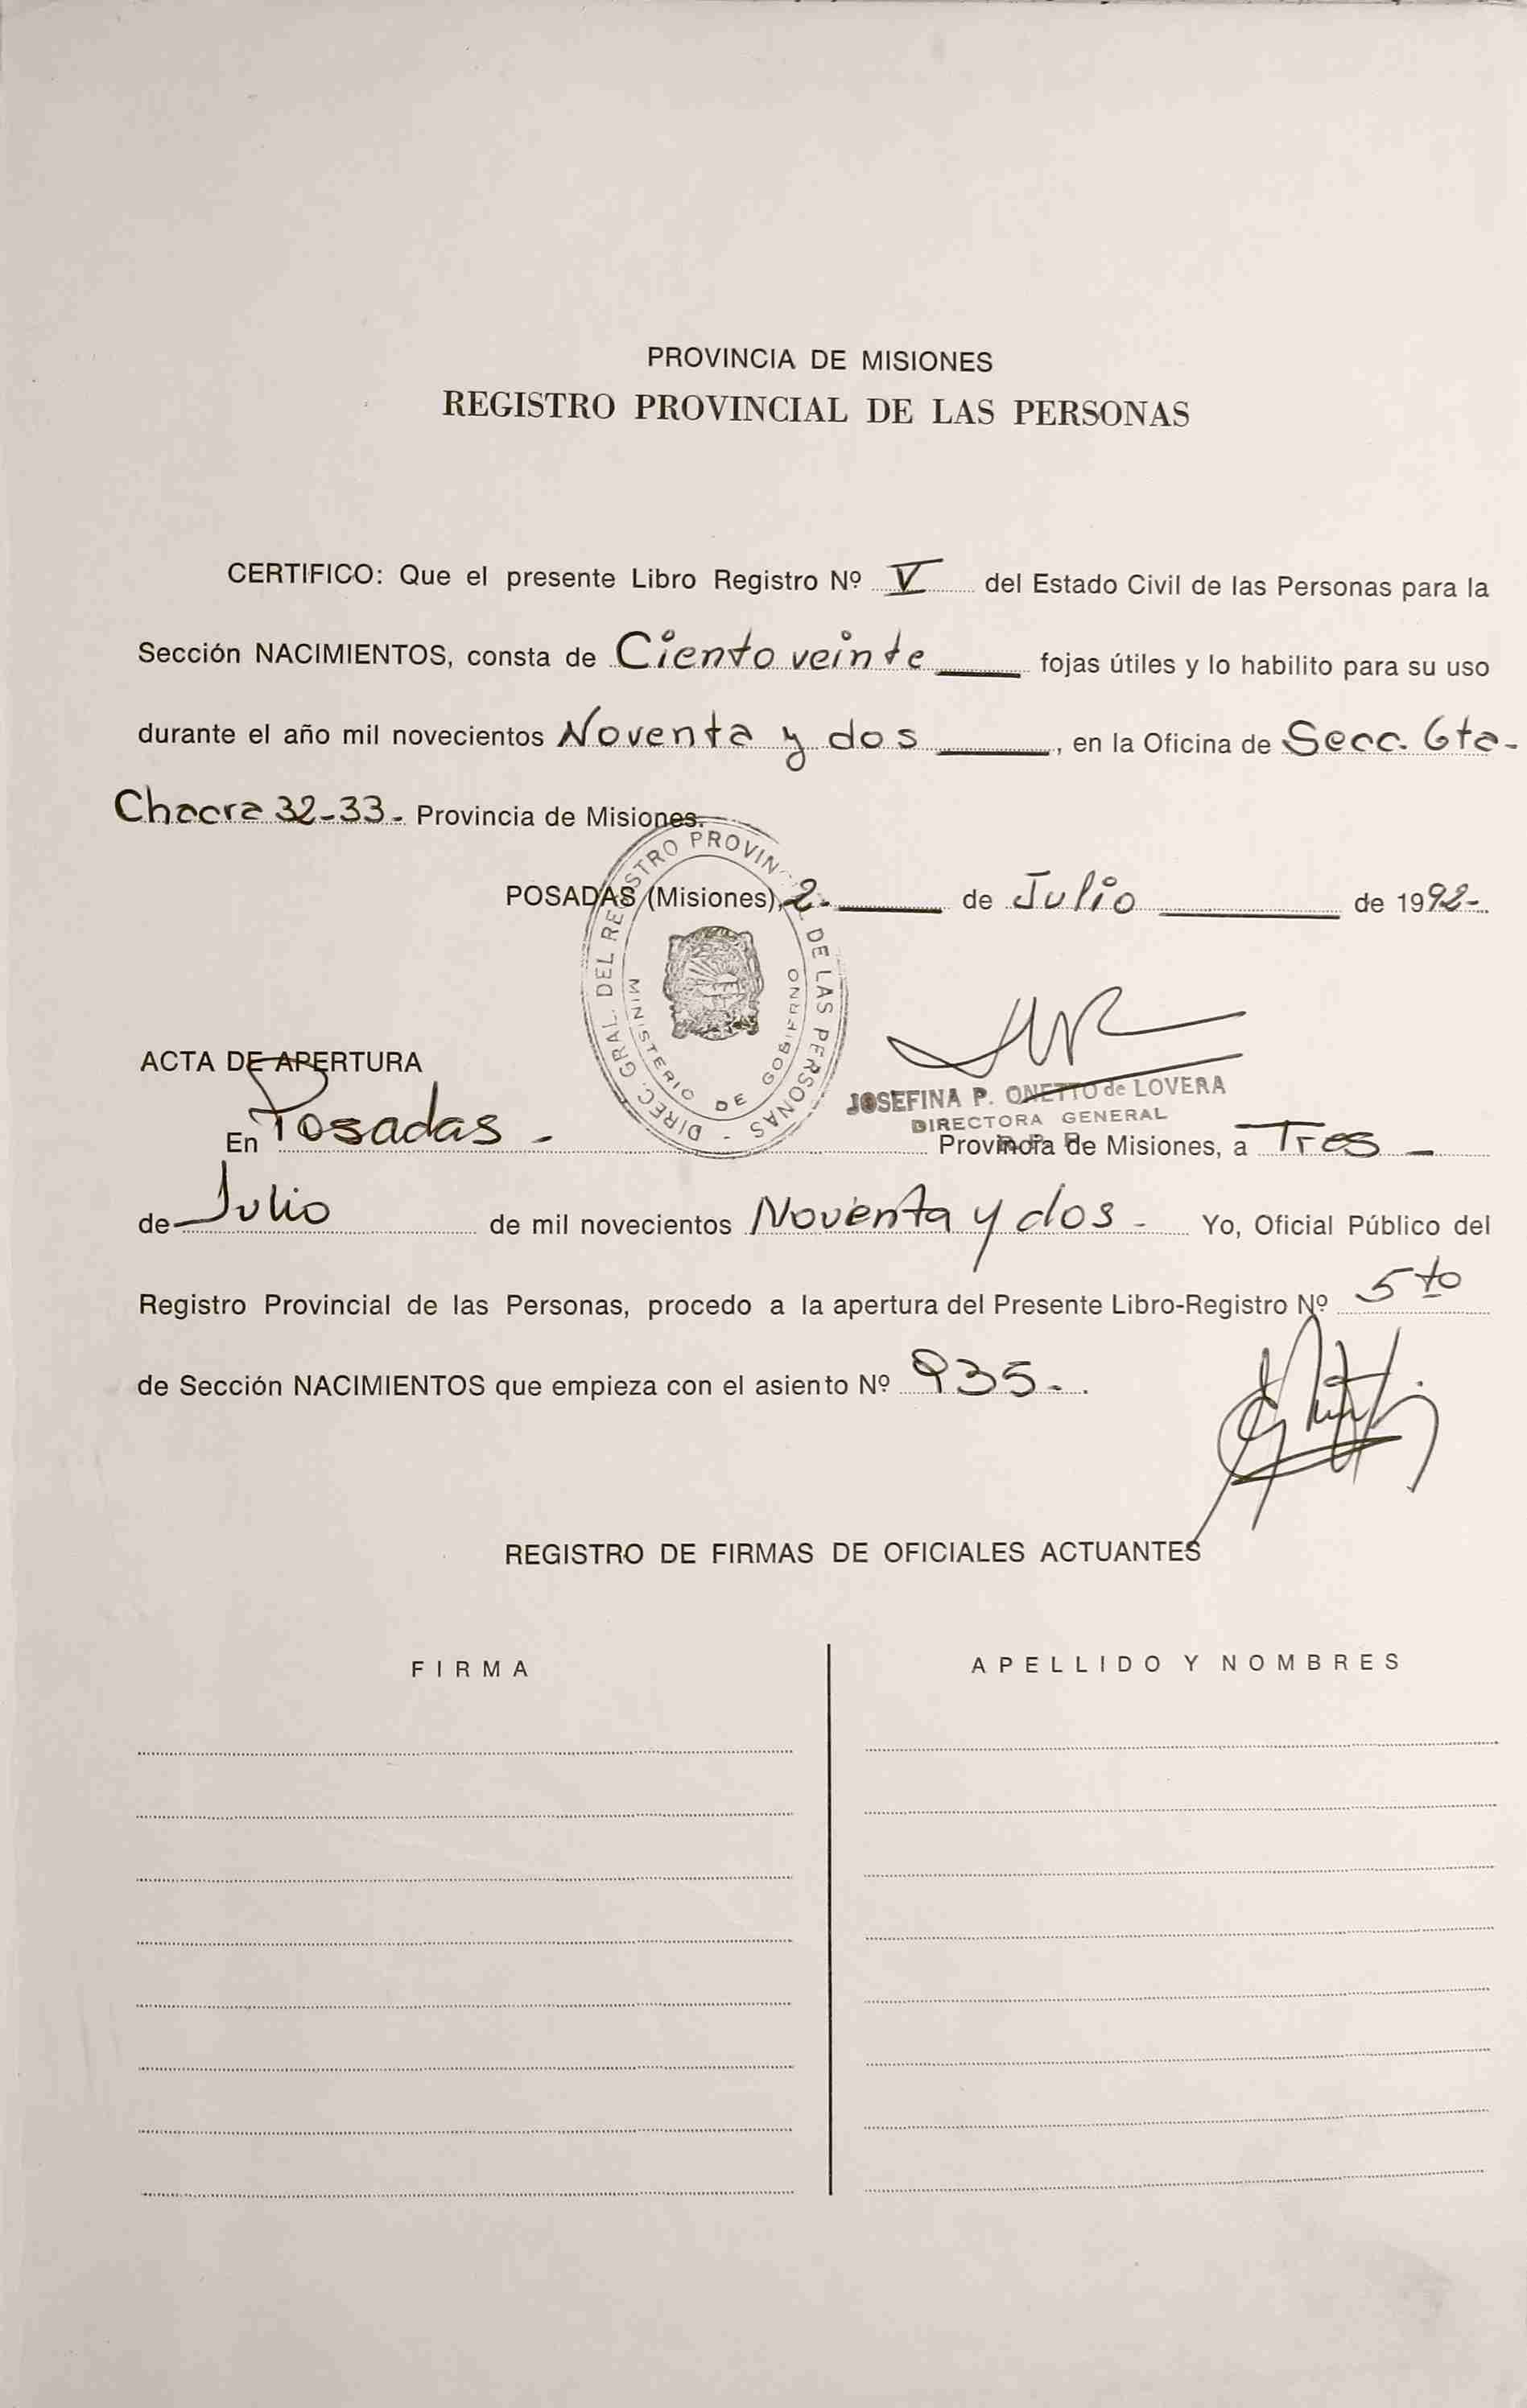 PROVINCIA DE MISIONES
REGISTRO PROVINCIAL DE LAS PERSONAS
CERTIFICO: Que el presente Libro Registro Nº V del Estado Civil de las Personas para la
Sección NACIMIENTOS, consta de Ciento veinte fojas útiles y lo habilito para su uso
durante el año mil novecientos Noventa y dos , en la Oficina de Secc. 6ta-
Chacra 32-33- Provincia de Misiones.
POSADAS (Misiones), 2- de Julio de 1992-
DIREC. GRAL. DEL REGISTRO PROVINCIAL DE LAS PERSONAS -
MINISTERIO DE GOBIERNO
JOSEFINA P. ONETTO de LOVERA
DIRECTORA GENERAL
ACTA DE APERTURA
En Posadas - Provincia de Misiones, a Tres -
de Julio de mil novecientos Noventa y dos - Yo, Oficial Público del
Registro Provincial de las Personas, procedo a la apertura del Presente Libro-Registro Nº 5to
de Sección NACIMIENTOS que empieza con el asiento Nº 935-.
REGISTRO DE FIRMAS DE OFICIALES ACTUANTES
FIRMA APELLIDO Y NOMBRES